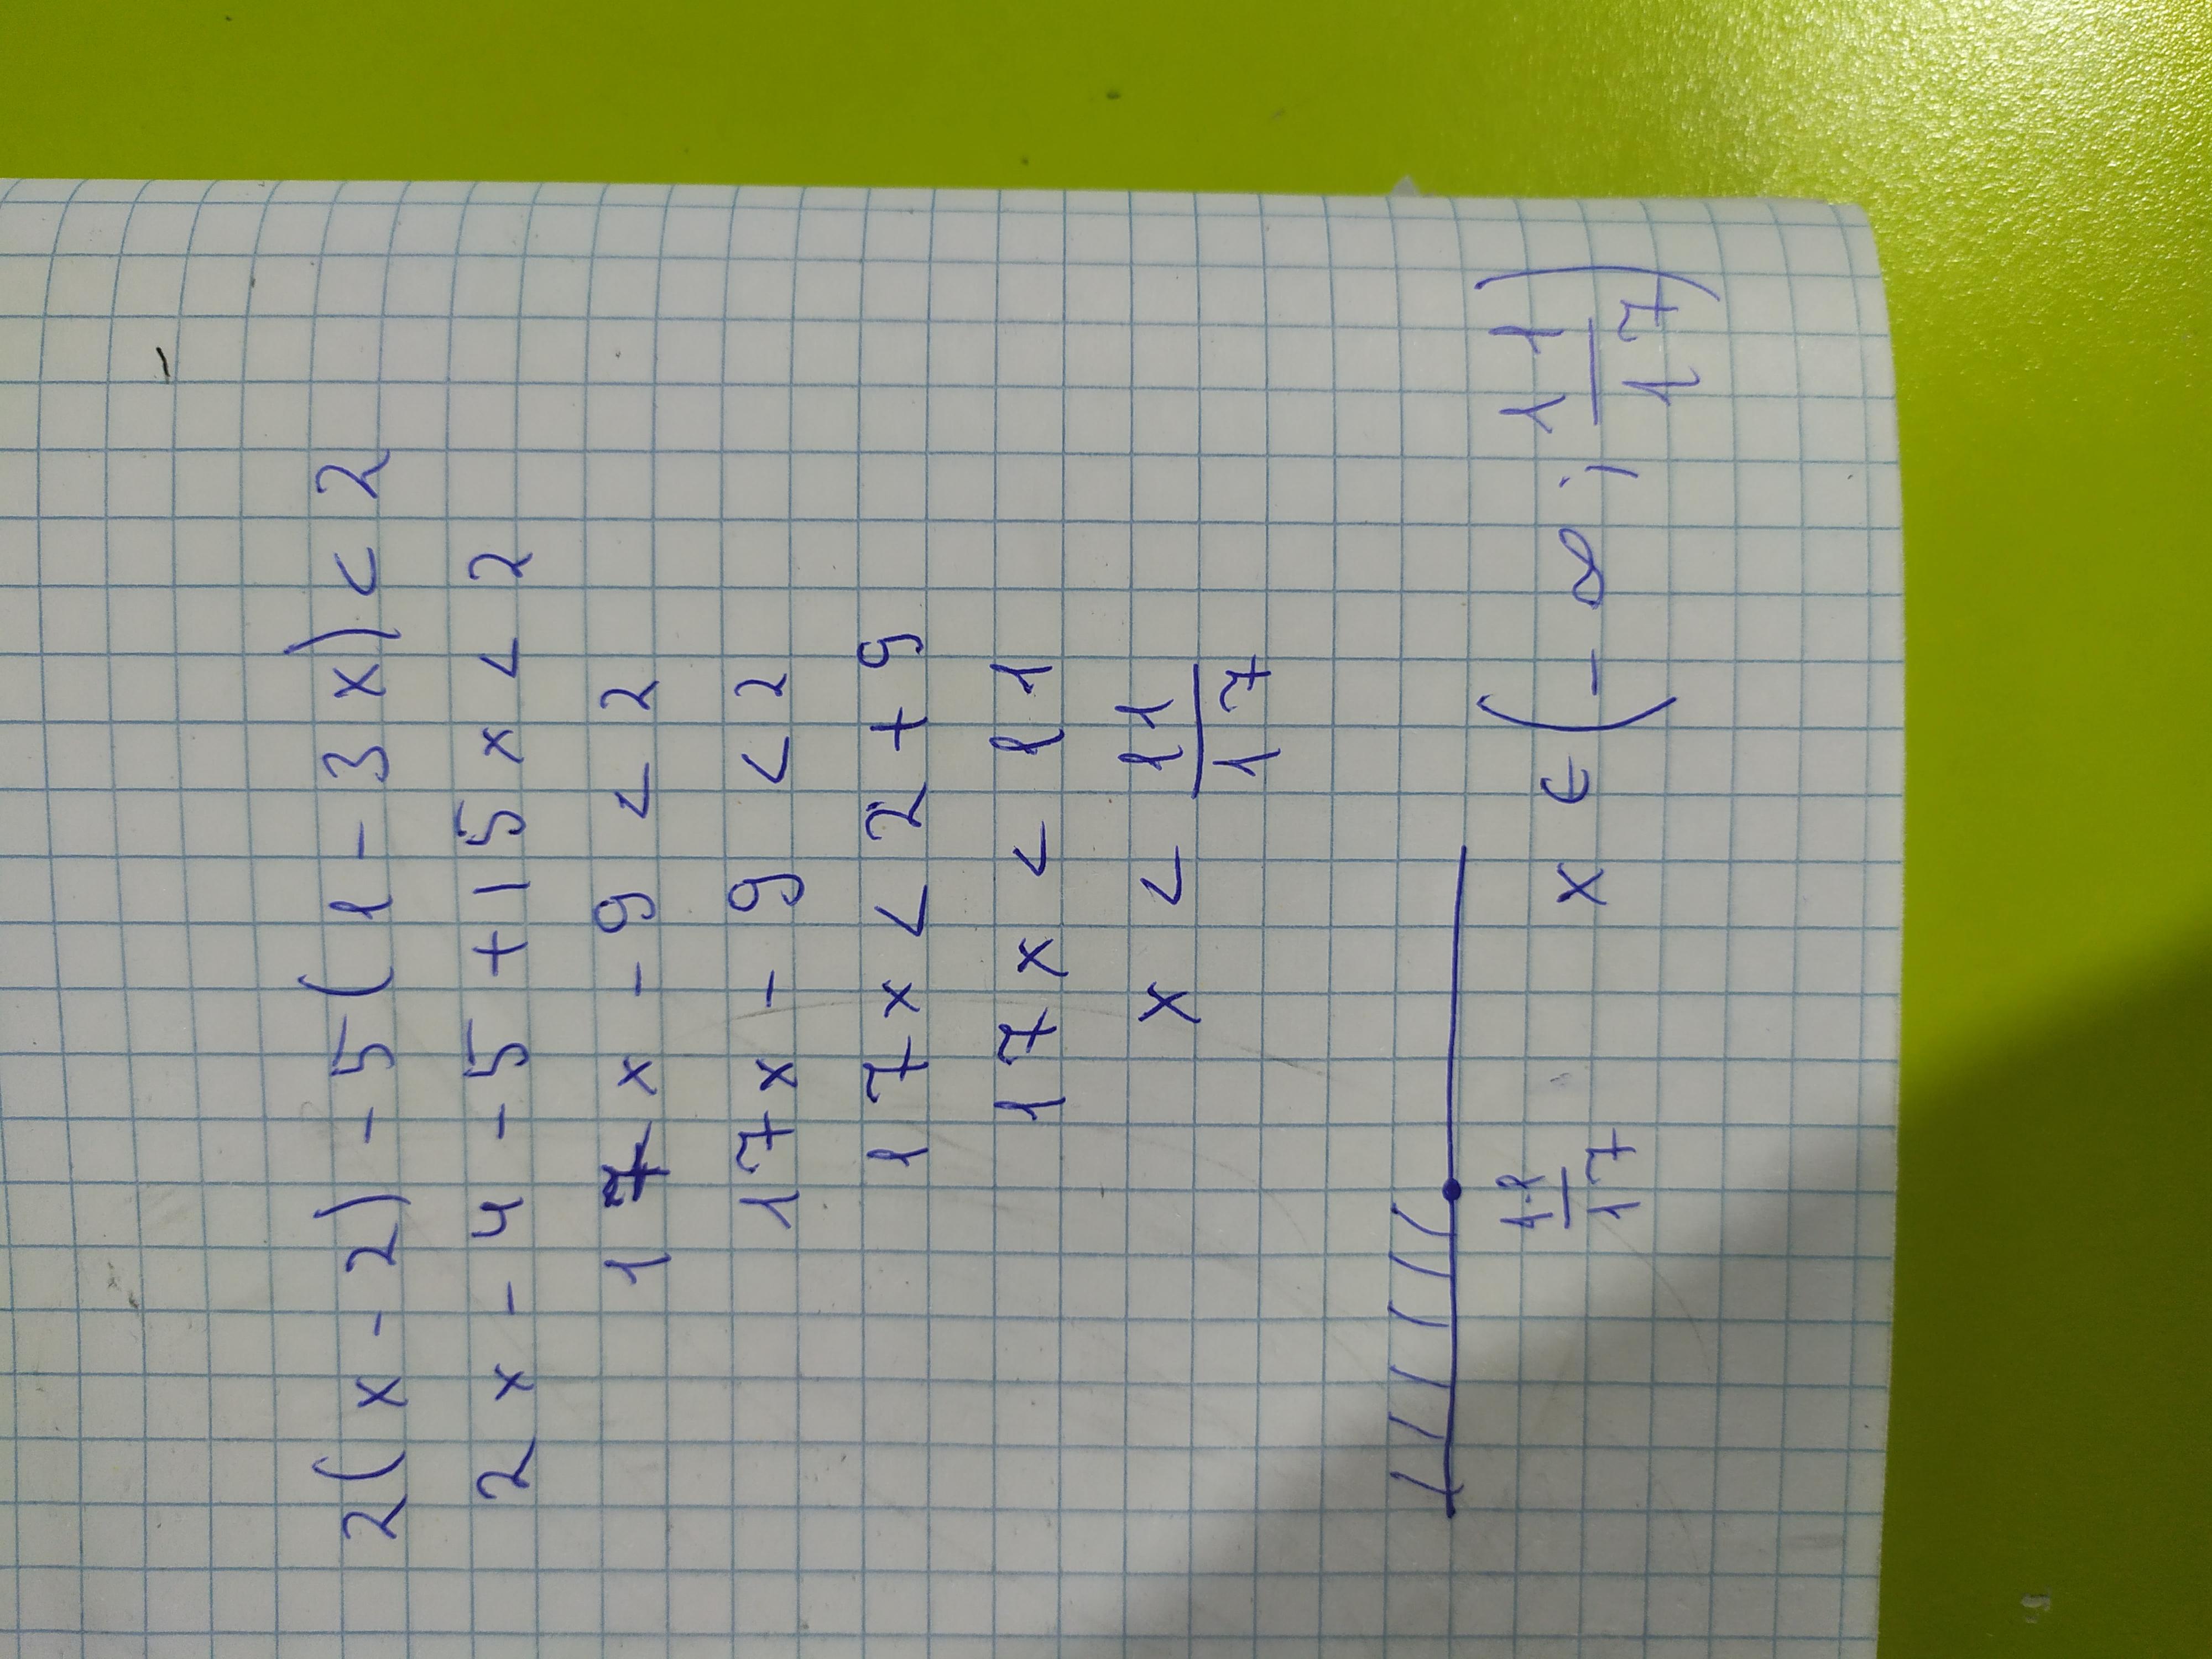 2(x-2)-5(1-3x)<2
2x-4-5+15x<2
17x-9<2
17x-9<2
17x<2+9
17x<11
x<11/17
11/17
x∈(-∞;11/17)